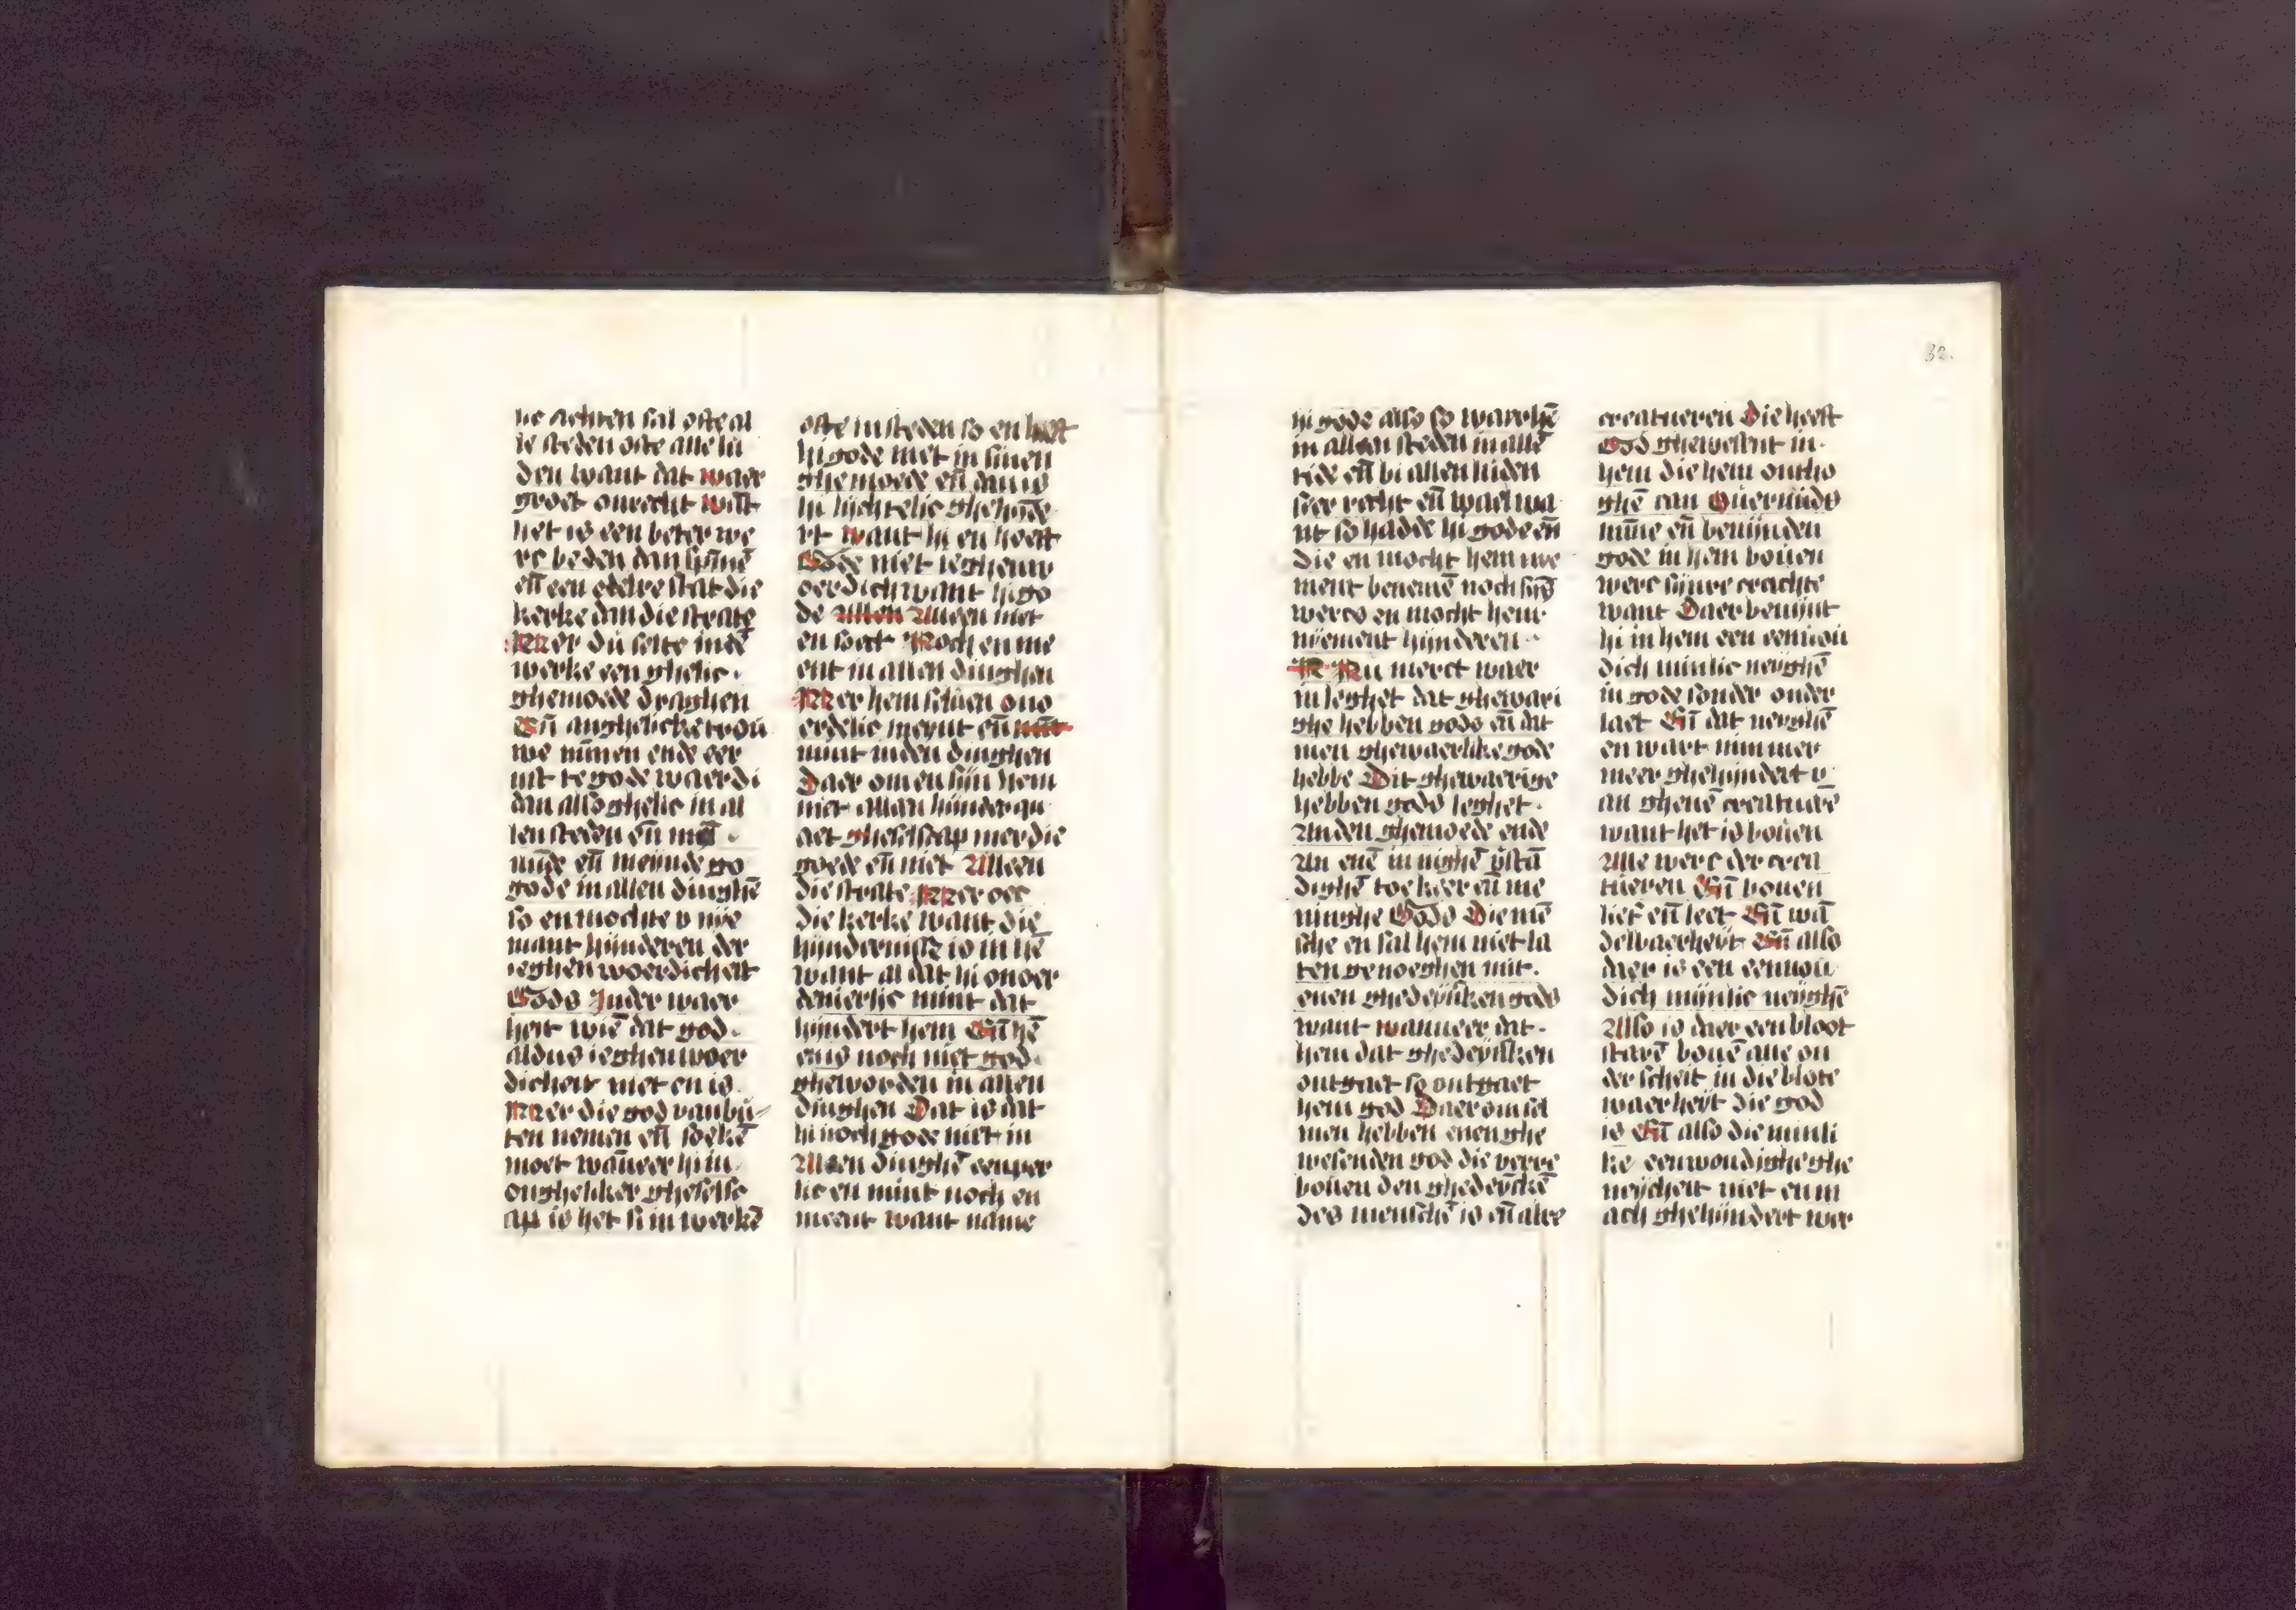 lic achten sal ofte al
le steden ofte alle lu
den want dat waer
groet onrecht wāt
het is een beter we
rc beden dan spīnē
eñ een edelre stat die
kerke dan die strate
Mer du selte in dē
werke een ghelic
ghemoede draghen
Eñ anghelicke trou
we mīnen ende eer
nit te gode waerdi
dan also ghelic in al
len steden eñ
mīde eñ meynde go
gode in allen dinghē
so en mochte v nye
mant hynderen der
ieghenwoerdicheit
Gods In der waer
heit wiē dat god
aldus ieghenwoer
dicheit niet en is
Mer die god van bu
ten nemen eñ soekē
moet wāneer hi in
ongheliker gheselsc
ap is het si in werkē
ofte in steden so en heeft
hi gode niet in sinen
ghemoede eñ dan is
hi lichtelic ghehīde
rt want hi en heeft
Gode niet ieghenw
oerdich want hi go
de allen Alleen niet
en soect Noch en me
ent in allen dinghen
Mer hem seluen ons
erdelic meynt eñ mīt
mint in den dinghen
Daer om en sijn hem
niet allan hinder qu
aet gheselscap mer die
goede eñ niet Alleen
die strate Mer oec
die kerke want die
hyndernisse is in hē
want al dat hi onoer
denierlic mint dat
hyndert hem Eñ hē
en is noch niet god
gheworden in allen
dinghen Dat is dat
hi noch gode niet in
Alleen dinghē eenper
lic en mint noch en
meent want name
hi gode also so waer hē
in allen steden in allē
tide eñ bi allen luden
seer recht eñ wael wa
nt so hadde hi gode eñ
die en mocht hem nye
ment benemē noch sijs
wercs en mocht hem
nyement hynderen
N Nu merct waer
in leghet dat ghewari
ghe hebben gods eñ dat
men ghewaerlike gode
hebbe Dit ghewaerige
hebben gods leghet
An den ghemoede ende
An enē innighē v̄stā
dighē toe keer eñ me
ninghe Gods Die mē
sche en sal hem niet la
ten genoeghen mit
enen ghedeynken gods
want wanneer dat
hem dat ghedeynken
ontgaet so ontgaet
hem god Daer om sel
men hebben enen ghe
wesenden god die verre
bouen den ghedēyckē
des menschē is eñ alre
creatueren Die heeft
God ghewesent in
hem die hem ontho
ghē can Ouermids
mīne eñ beuynden
gode in hem bouen
werc sijnre crachte
want Daer beuynt
hi in hem een eenuou
dich minlic neyghē
in gode sonder onder
laet Eñ dat neyghē
en wart nimmer
meer ghehyndert v
an ghenē creatuerē
want het is bouen
Alle werc der crea
tueren Eñ bouen
lief eñ leet Eñ wā
delbaerheyt Eñ also
daer is een eenuou
dich mynlic neyghē
Also is daer een bloot
starē bouē alle on
derscheit in die blote
waerheyt die god
is Eñ also die minli
ke eenwoudighe ghe
neycheit niet en m
ach ghehyndert wer